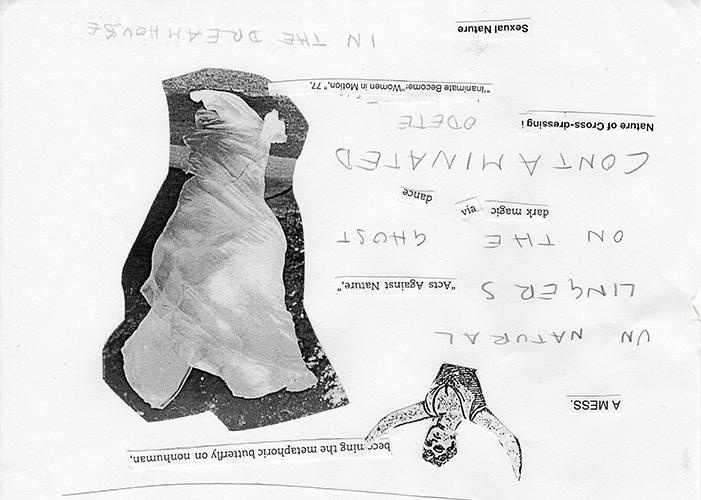 becoming the metaphoric butterfly on nonhuman,
A MESS.
UN NATURAL
LINGERS "Acts Against Nature",
ON THE GHOST
dark magic via dance
CONTAMINATED
Nature of Cross-dressing i ODETE
"Inanimate Become:"Women in Motion," 77.
Sexual Nature
IN THE DREAMHOUSE